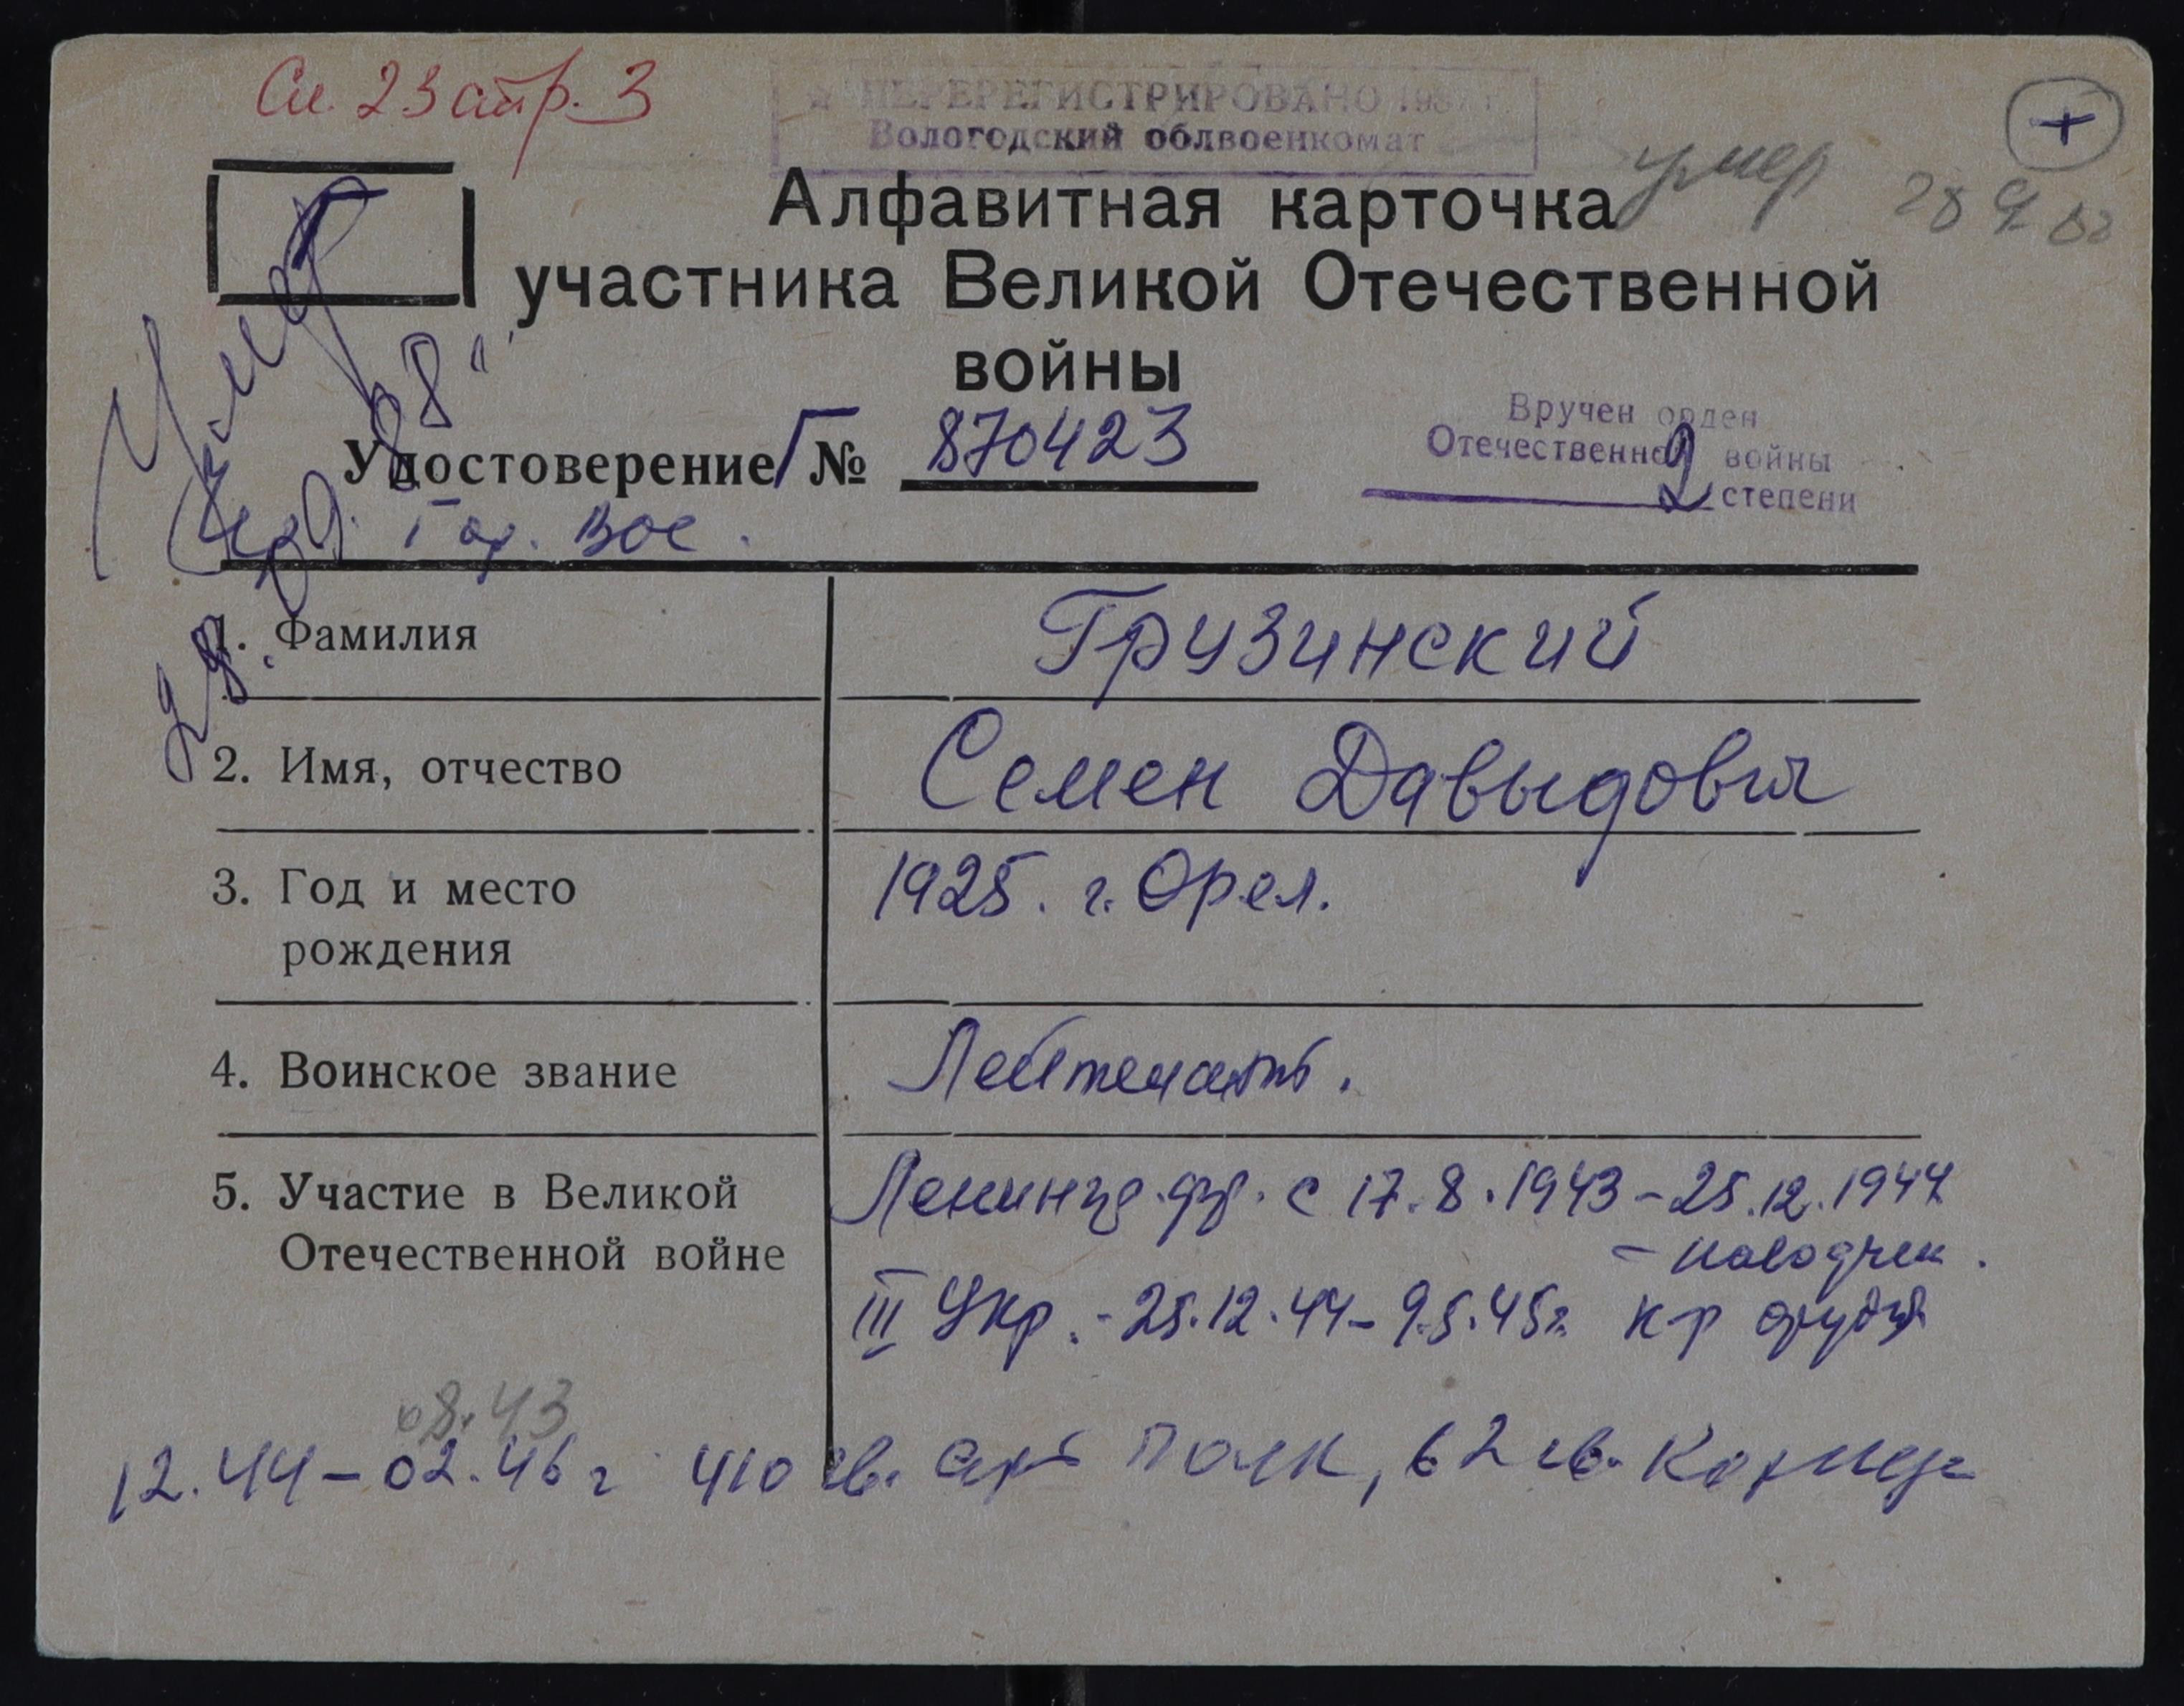 См. 23 стр. 3
ПЕРЕРЕГИСТРИРОВАНО
Вологодский облвоенкомат
+
умер
28 9
Алфавитная карточка
участника Великой Отечественной
войны
Умер
Вручен орден
Отечественной войны
2 степени
Удостоверение Г № 870423
28.09.88"
Гор. вое.
1. Фамилия Грузинский
2. Имя, отчество Семен Давыдович
3. Год и место 1925. г. Орел.
рождения
4. Воинское звание Лейтенант.
5. Участие в Великой Ленингр. фр. с 17.8.1943 – 25.12.1944
Отечественной войне – наводчик.
III Укр. - 25.12.44 – 9.5.45г. к-р орудия
08.43
12.44 – 02.46 г 410 гв. арт полк,